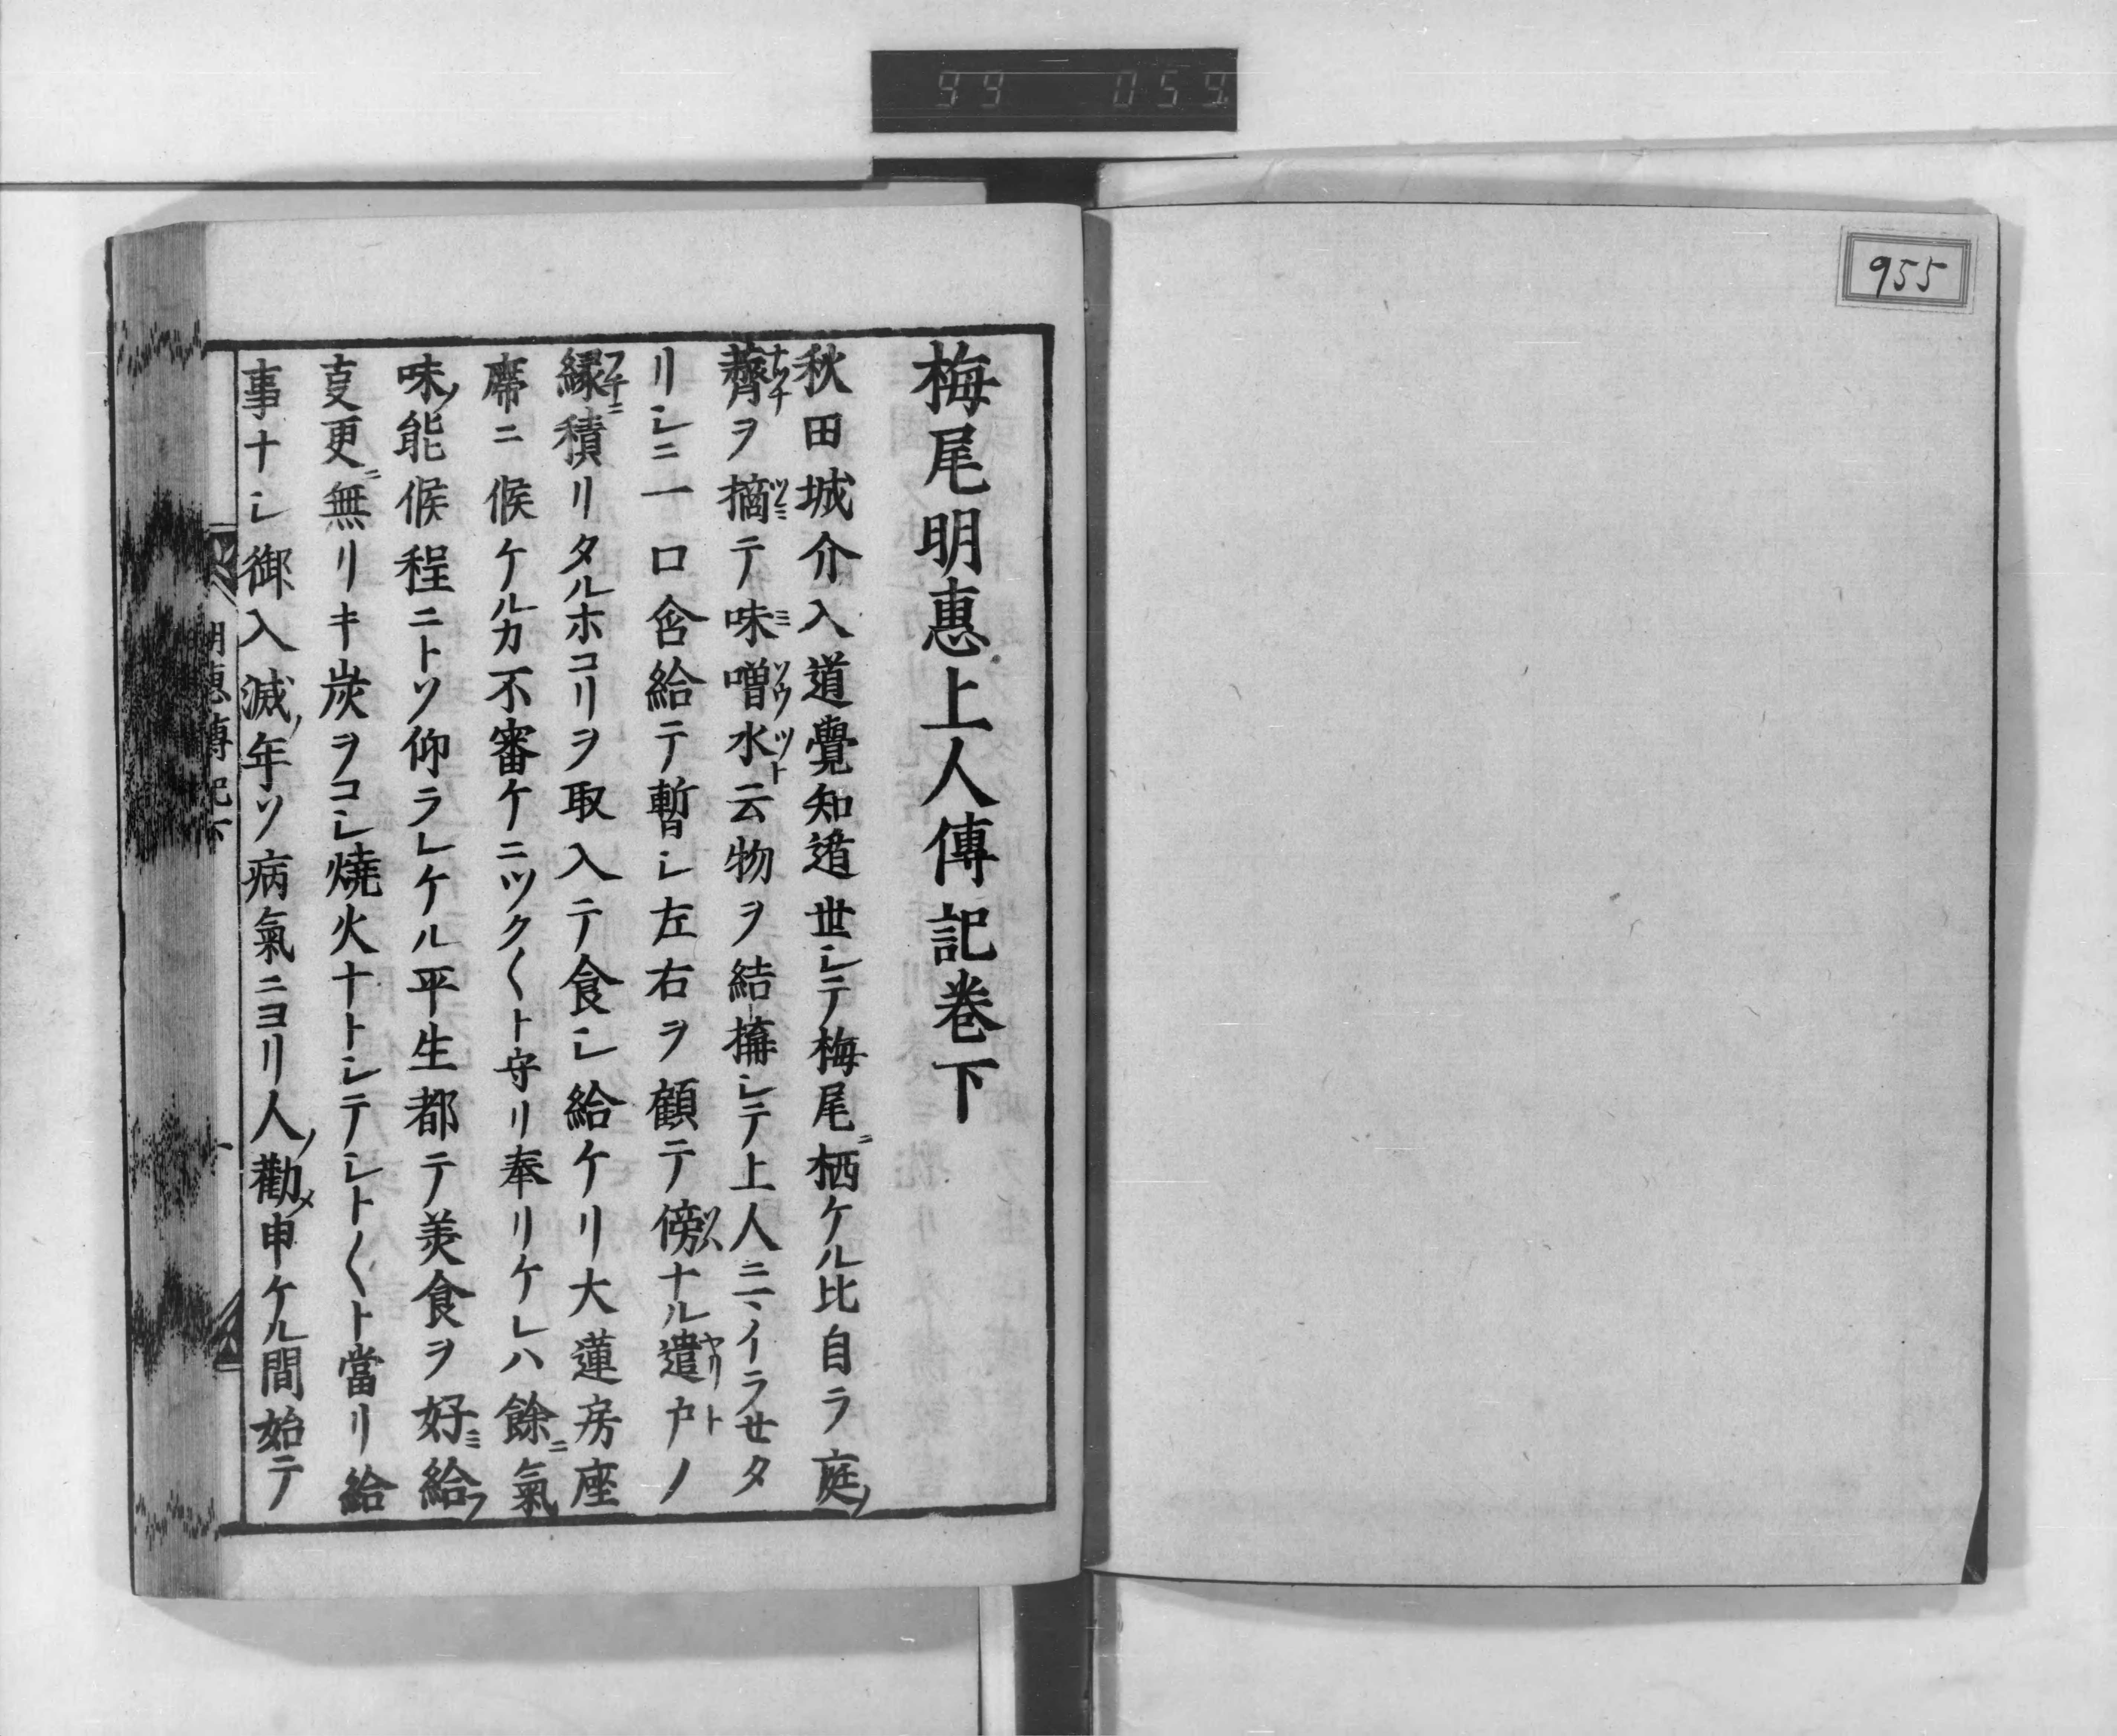 99 059
955
梅尾明惠上人傳記巻下
秋田城介入道覺知遁世シテ梅尾ニ栖ケル比自ラ庭ノ
薺ヲ摘テ味噌水ト云物ヲ結構シテ上人ニ、イラセタ
リシニ一口含給テ暫シ左右ヲ顧テ傍ナル遣戸ノ
縁ニ積リタルホコリヲ取入テ食シ給ケリ大蓮房座
席ニ候ケルカ不審ケニツク〱ト守リ奉リケレハ餘ニ氣
味ノ能候程ニトソ仰ラレケル平生都テ美食ヲ好ミ給フ
叓更ニ無リキ炭ヲコシ燒火ナトシテシト〱ト當リ給
事ナシ御入滅ノ年ソ病氣ニヨリ人ノ勸メ申ケル間始テ
明惠傳記下
一